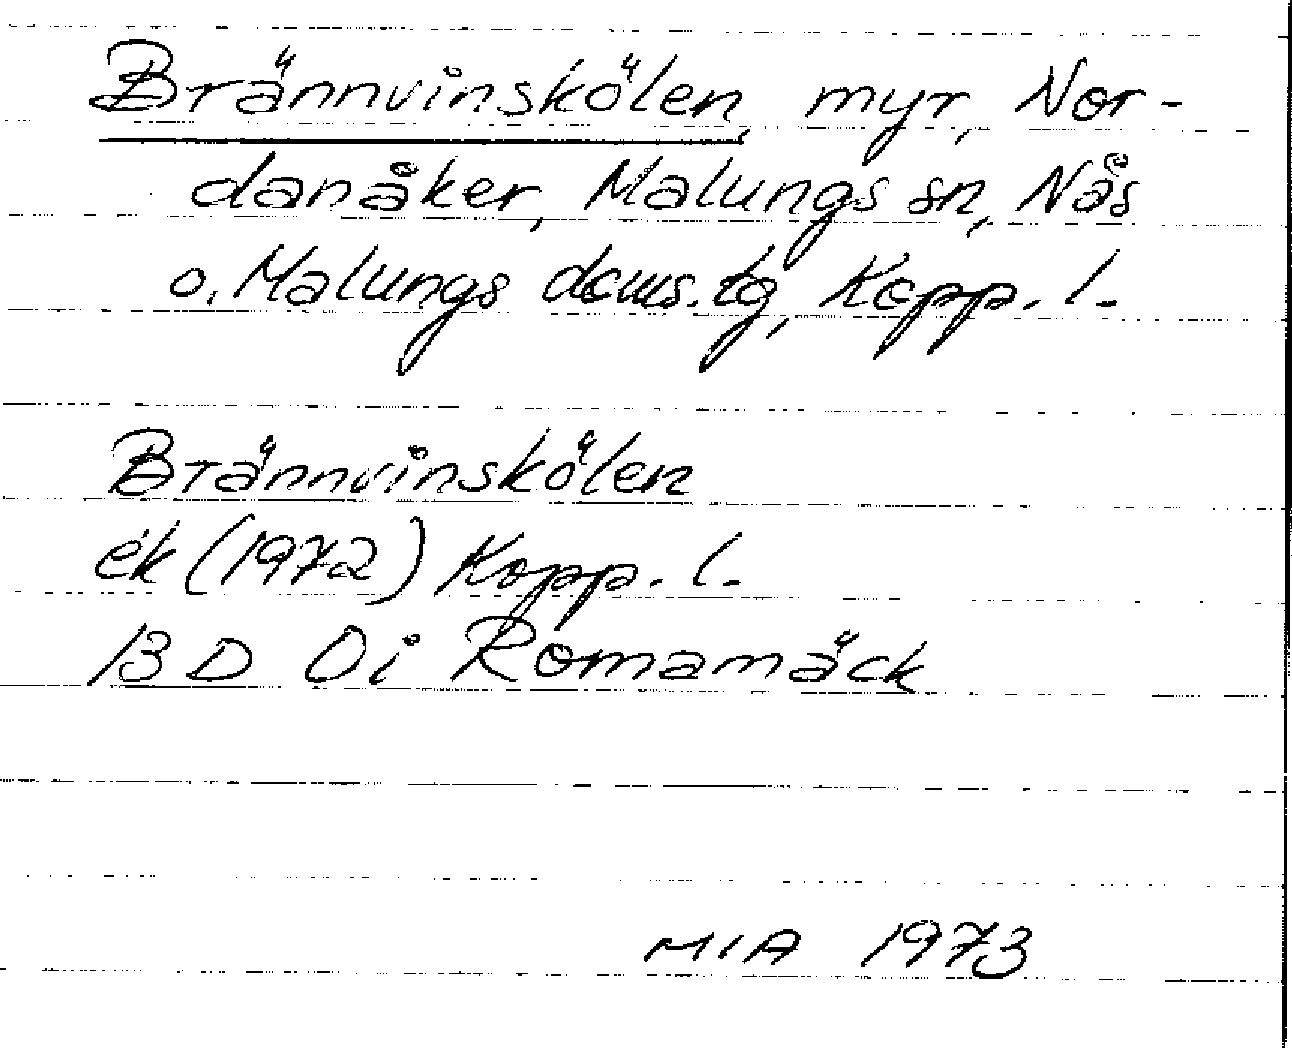 Brännvinskölen, myr, Nor-
danåker, Malungs sn, Nås
o. Malungs doms.tg, Kopp. l.
Brännvinskölen
ek (1972) Kopp. l.
13 D 0i Romamäck
MIA 1973